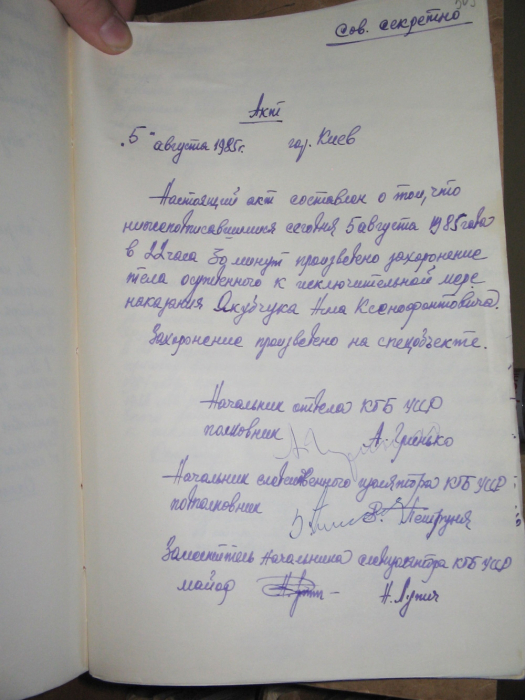 Сов. секретно
Акт
"5" августа 1985г. гор. Киев
Настоящий акт составлен о том, что
нижеподписавшимися сегодня 5 августа 1985 года
в 22 часа 30 минут произведено захоронение
тела осужденного к исключительной мере
наказания Якубчука Ксенофонтовича.
Захоронение произведено на спецобъекте.
Начальник отдела КГБ УССР
полковник А. Гринько
Начальник следственного изолятора КГБ УССР
подполковник В. Петруня
Заместитель Начальника следизолятора КГБ УССР
майор Н. Лупич